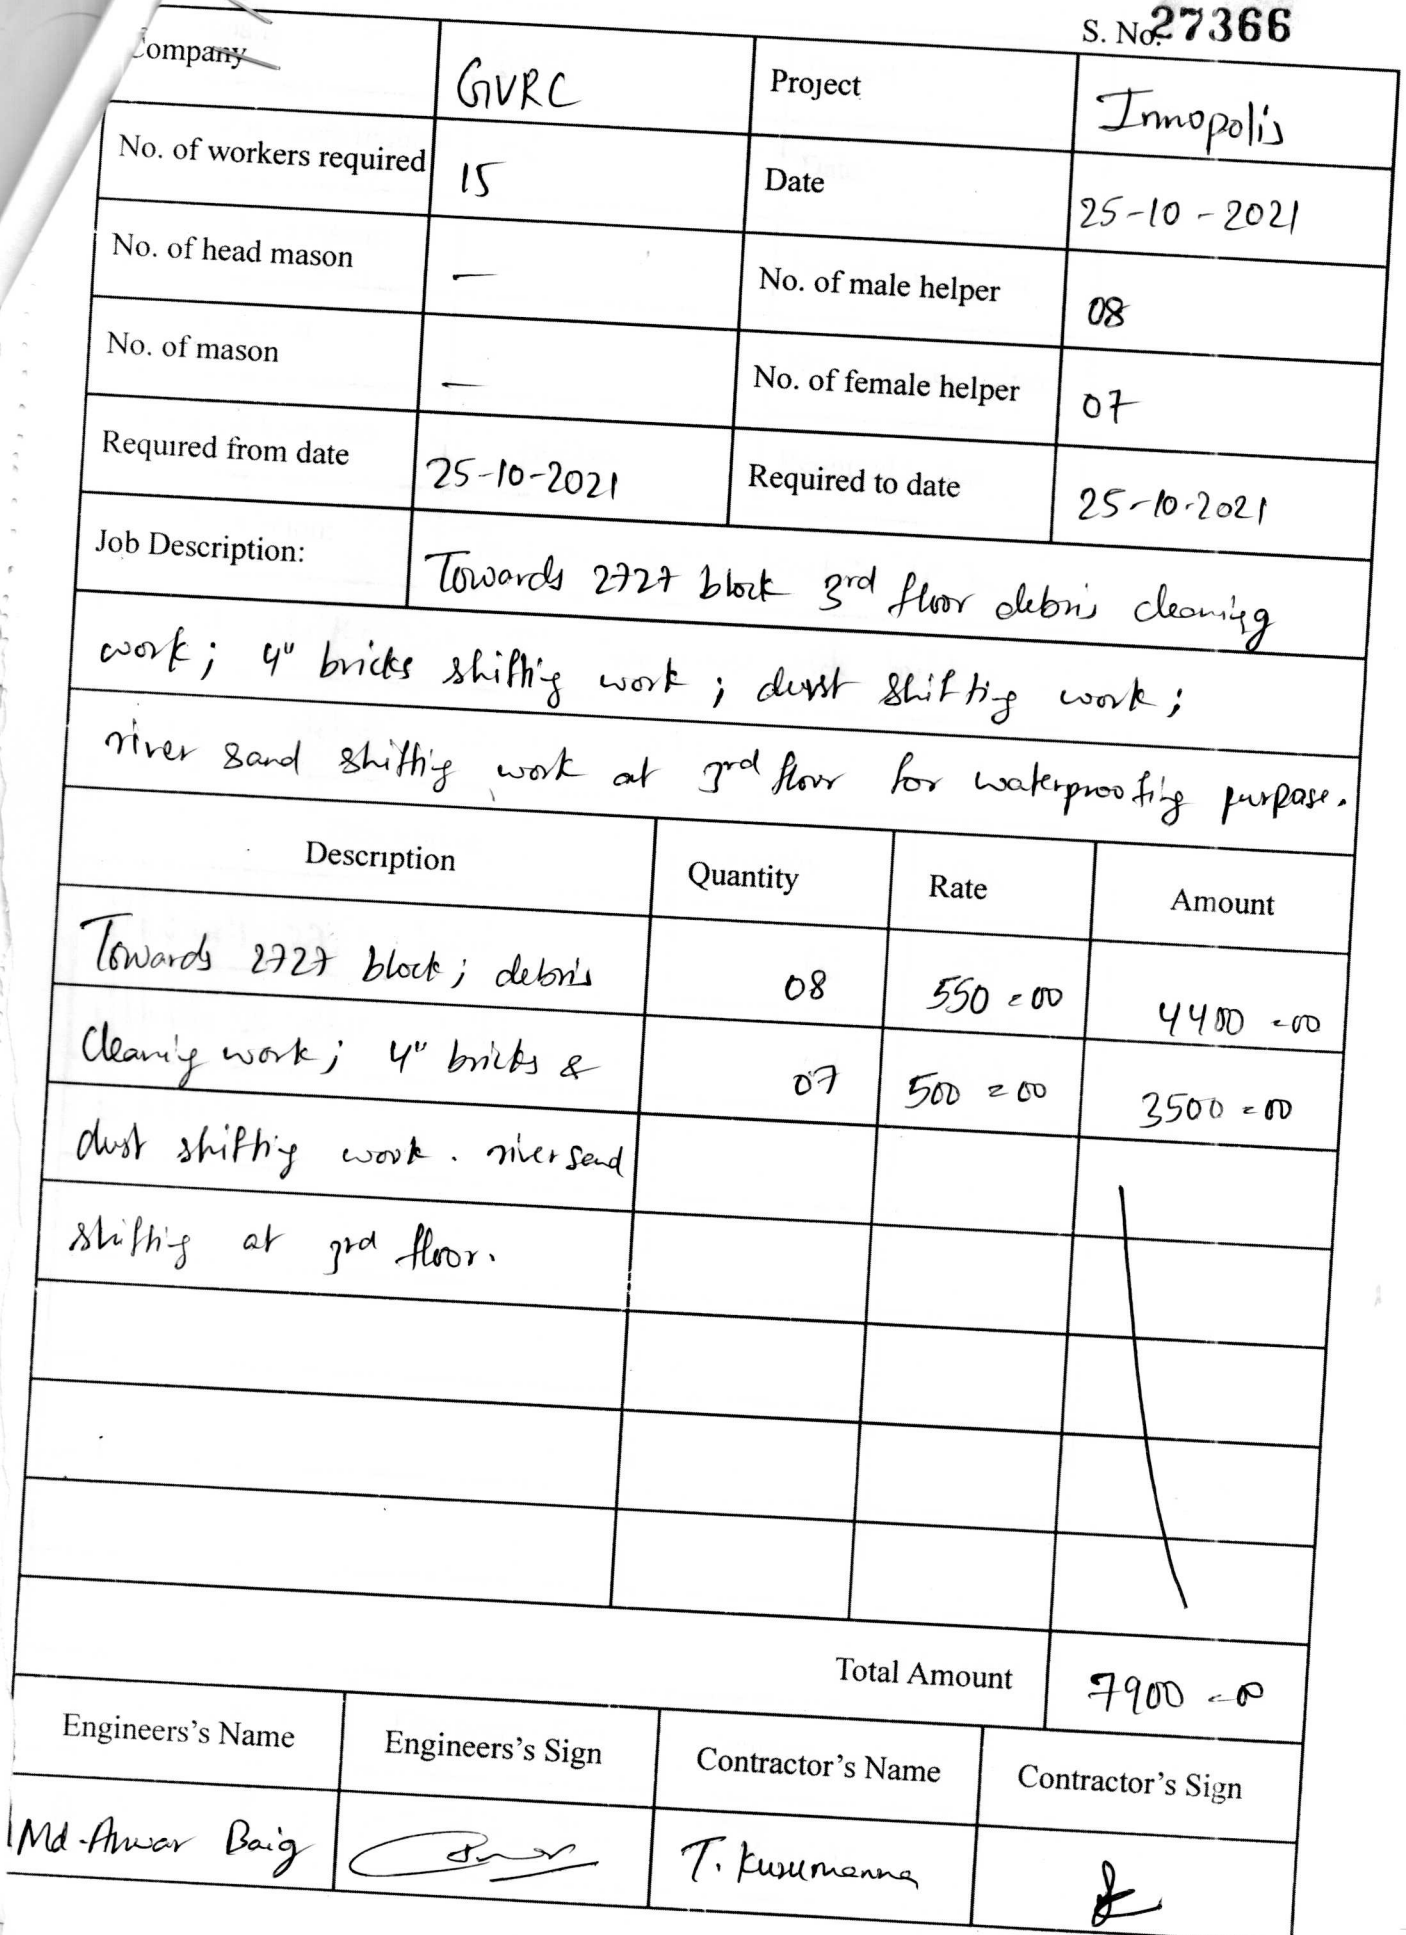 S. No. 27366
Company GVRC Project Innopolis
No. of workers required 15 Date 25-10-2021
No. of head mason — No. of male helper 08
No. of mason — No. of female helper 07
Required from date 25-10-2021 Required to date 25-10-2021
Job Description: Towards 2727 block 3rd floor debris cleaning
work; 4" bricks shifting work; dust shifting work;
river sand shifting work at 3rd floor for waterproofing purpose.
Description Quantity Rate Amount
Towards 2727 block; debris 08 550=00 4400=00
Cleaning work; 4" bricks & 07 500=00 3500=00
dust shifting work. river sand
shifting at 3rd floor.
Total Amount 7900=00
Engineers's Name Engineers's Sign Contractor's Name Contractor's Sign
Md. Anwar Baig T. Kusumanna